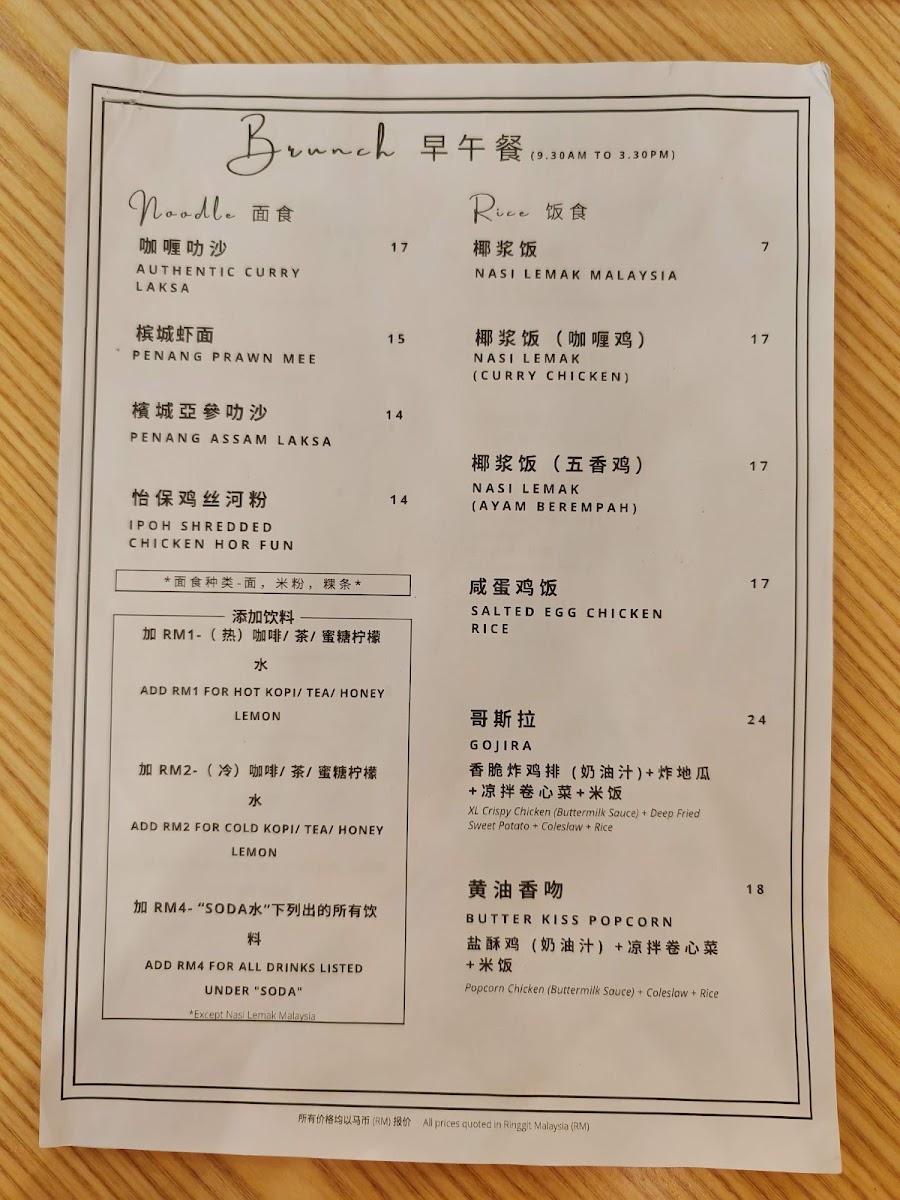 Brunch 早午餐 (9.30AM TO 3.30PM)
Noodle 面食
咖喱叻沙 17
AUTHENTIC CURRY
LAKSA
槟城虾面 15
PENANG PRAWN MEE
檳城亞參叻沙 14
PENANG ASSAM LAKSA
怡保鸡丝河粉 14
IPOH SHREDDED
CHICKEN HOR FUN
*面食种类-面，米粉，粿条*
添加饮料
加 RM1-（热）咖啡/ 茶/ 蜜糖柠檬
水
ADD RM1 FOR HOT KOPI/ TEA/ HONEY
LEMON
加 RM2-（冷）咖啡/ 茶/ 蜜糖柠檬
水
ADD RM2 FOR COLD KOPI/ TEA/ HONEY
LEMON
加 RM4- “SODA水”下列出的所有饮
料
ADD RM4 FOR ALL DRINKS LISTED
UNDER "SODA"
*Except Nasi Lemak Malaysia
Rice 饭食
椰浆饭 7
NASI LEMAK MALAYSIA
椰浆饭（咖喱鸡） 17
NASI LEMAK
(CURRY CHICKEN)
椰浆饭（五香鸡） 17
NASI LEMAK
(AYAM BEREMPAH)
咸蛋鸡饭 17
SALTED EGG CHICKEN
RICE
哥斯拉 24
GOJIRA
香脆炸鸡排 (奶油汁)+炸地瓜
+凉拌卷心菜+米饭
XL Crispy Chicken (Buttermilk Sauce) + Deep Fried
Sweet Potato + Coleslaw + Rice
黄油香吻 18
BUTTER KISS POPCORN
盐酥鸡 (奶油汁) +凉拌卷心菜
+米饭
Popcorn Chicken (Buttermilk Sauce) + Coleslaw + Rice
所有价格均以马币 (RM) 报价 All prices quoted in Ringgit Malaysia (RM)